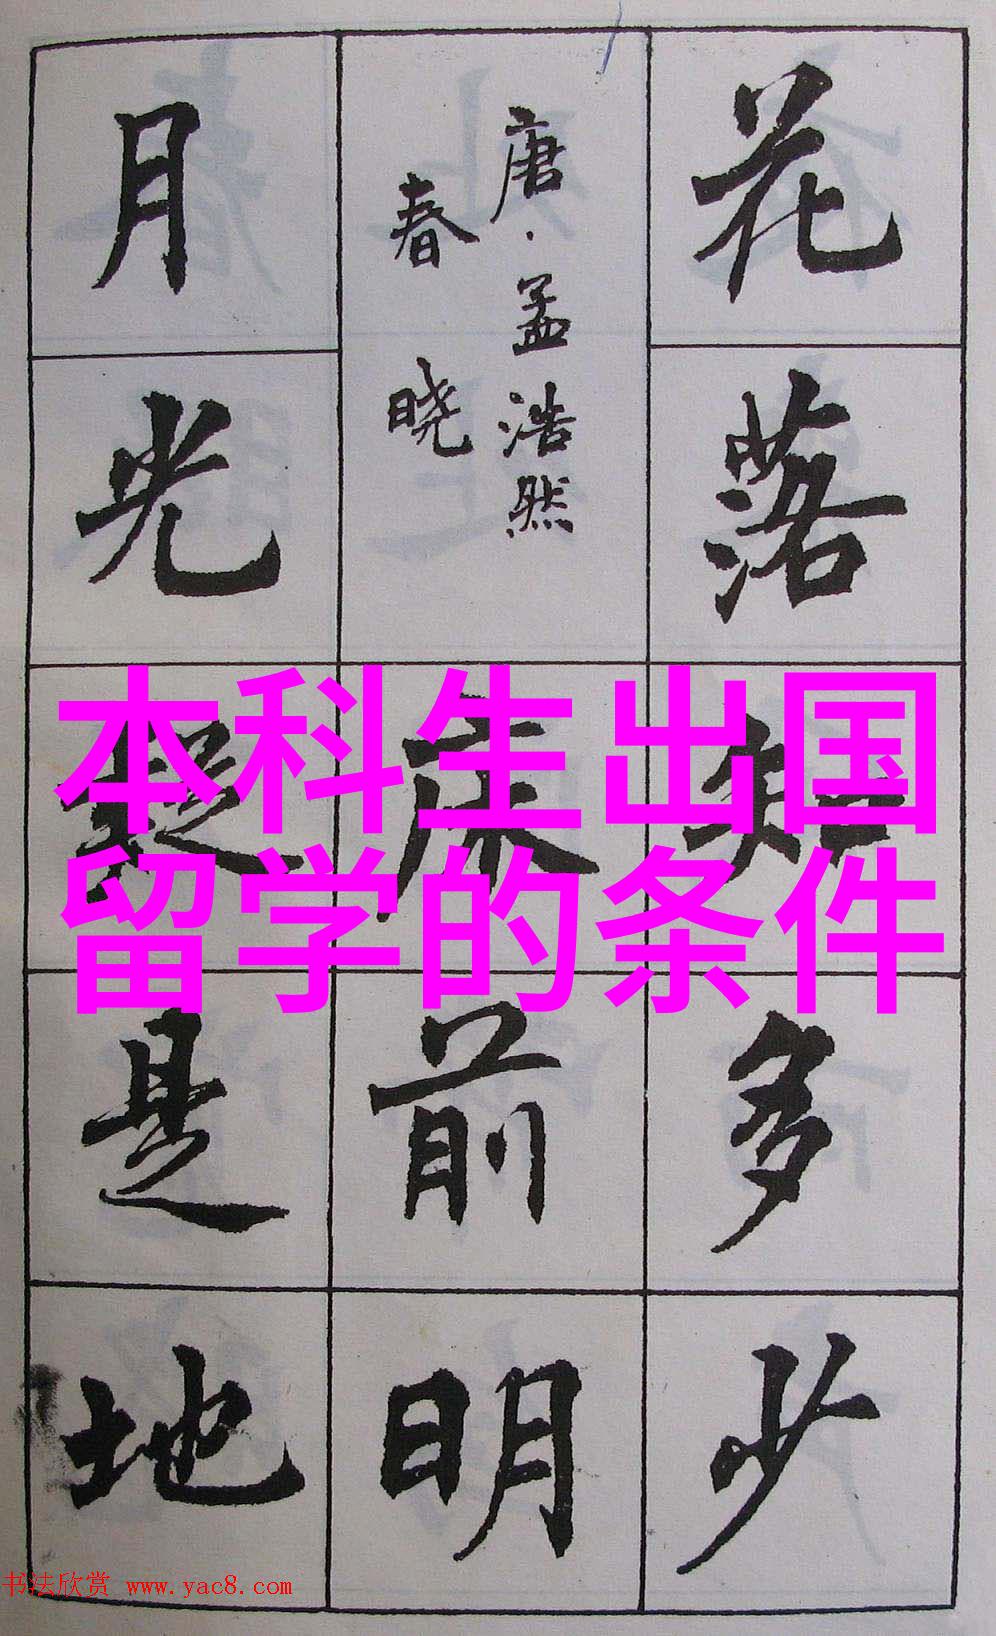 花落知多少
唐·孟浩然
春晓
床前明
月光疑是地
本科生出国
留学的条件
书法欣赏 www.yac8.com